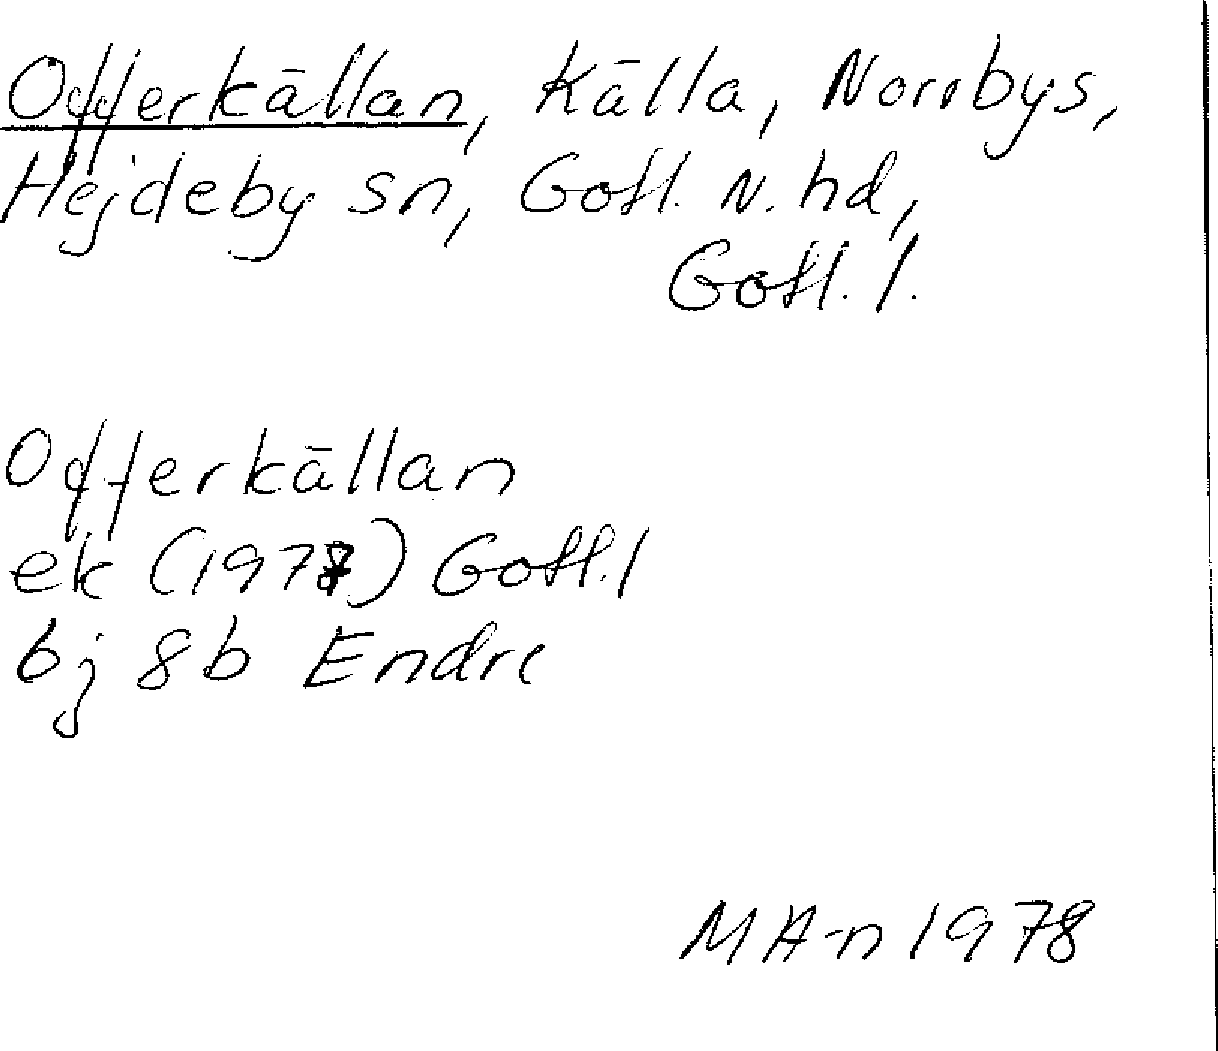 Offerkällan, Källa, Norrbys,
Hejdeby sn, Gotl. N. hd,
Gotl. l.
Offerkällan
ek (1977) Gotl. l
bj 8b Endre
MA-n 1978